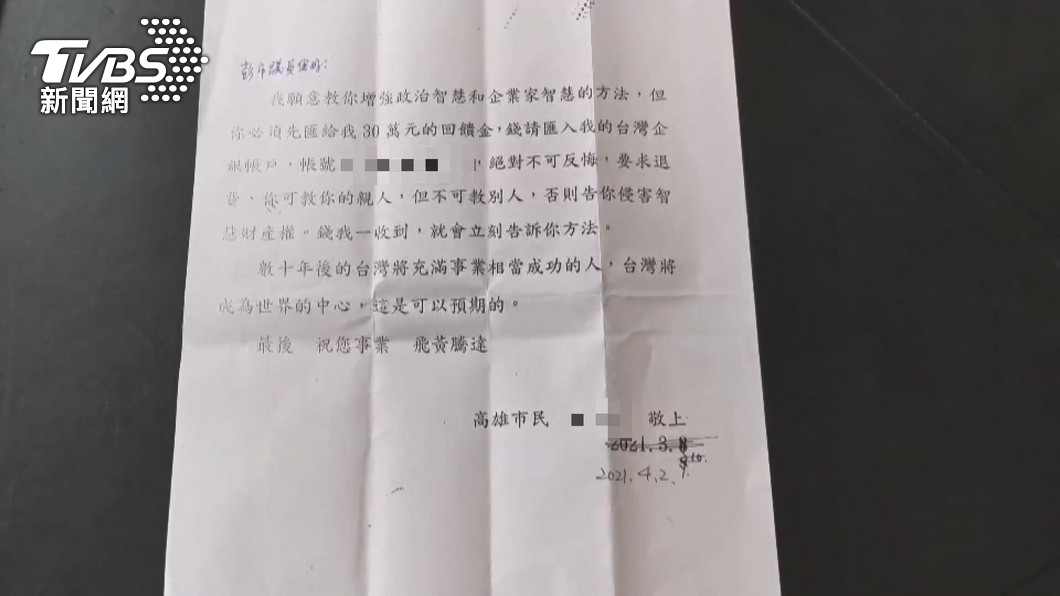 TVBS
新聞網
彭市議員您好:
我願意教你增強政治智慧和企業家智慧的方法,但
你必須先匯給我30萬元的回饋金,錢請匯入我的台灣企
銀帳戶,帳號 ,絕對不可反悔,要求退
費,你可教你的親人,但不可教別人,否則告你侵害智
慧財產權。錢我一收到,就會立刻告訴你方法。
數十年後的台灣將充滿事業相當成功的人,台灣將
成為世界的中心,這是可以預期的。
最後 祝您事業 飛黃騰達
高雄市民 敬上
2021.3.8
2021.4.2